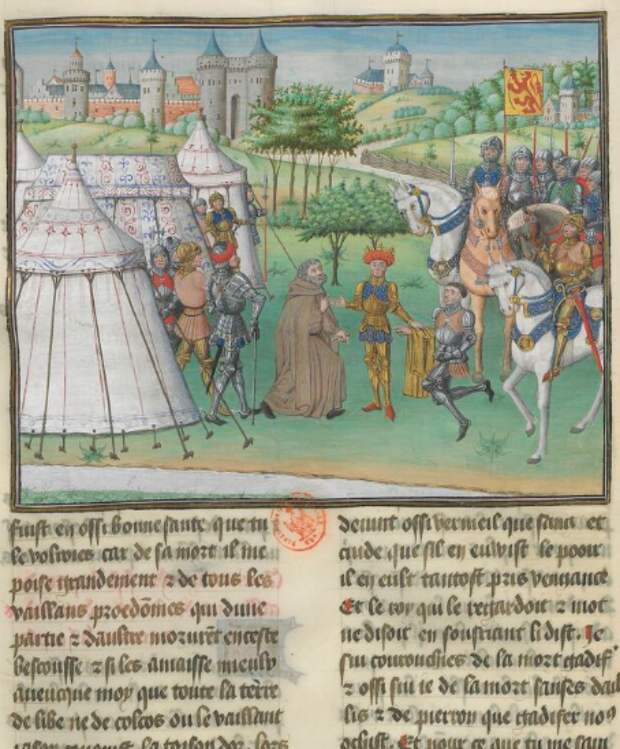 fuist en ossi bonne sante que tu
le voldroies car de sa mort il me
poise grandement z de tous les
vaillans proedõmes qui dune
partie z daultre morurẽt en ceste
bescousse z si les amaisse mieulx
auencque moy que toute la terre
de libe ne de colcos ou le vaillant
iason conquist la toison dor. lors
deuint ossi vermeil que sanc et
cuide que sil en euwist le pooir
il en eust tantost pris vengance
Et le roy qui le regardoit z mot
ne disoit en sousriant li dist. Je
sui courouchies de la mort gadif
z ossi sui ie de la mort
lis z de pierron que gadifer no9
ochist. Et pour ce que tu me